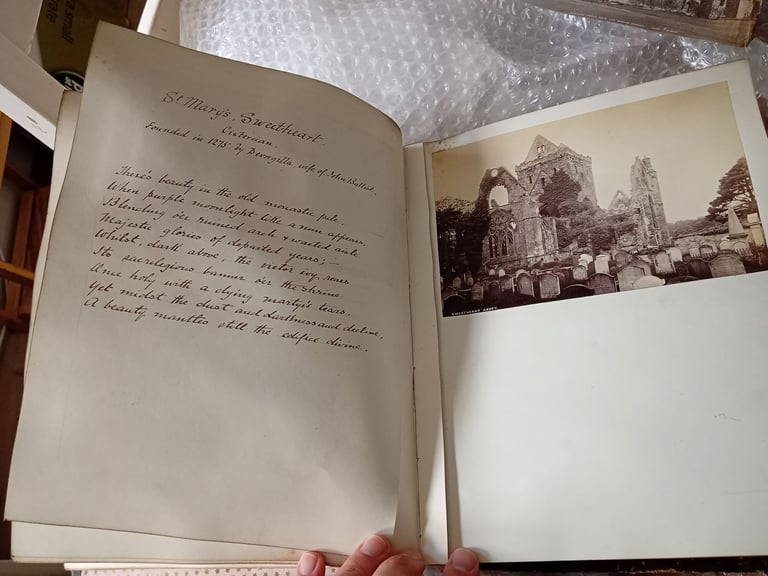 St Mary's, Sweetheart.
Cistercian.
Founded in 1275 by Devorgilla wife of John Balliol.
There's beauty in the old monastic pile,
When purple moonlight like a nun appears,
Blending o'er ruined arch & wasted aisle
Majestic glories of departed years; –
Whilst, dark above, the victor ivy rears
Its sacrilegious banner o'er the shrine
Once holy with a dying martyr's tears,
Yet midst the dust and darkness and decline,
A beauty mantles still the edifice divine.
SWEETHEART ABBEY
a small